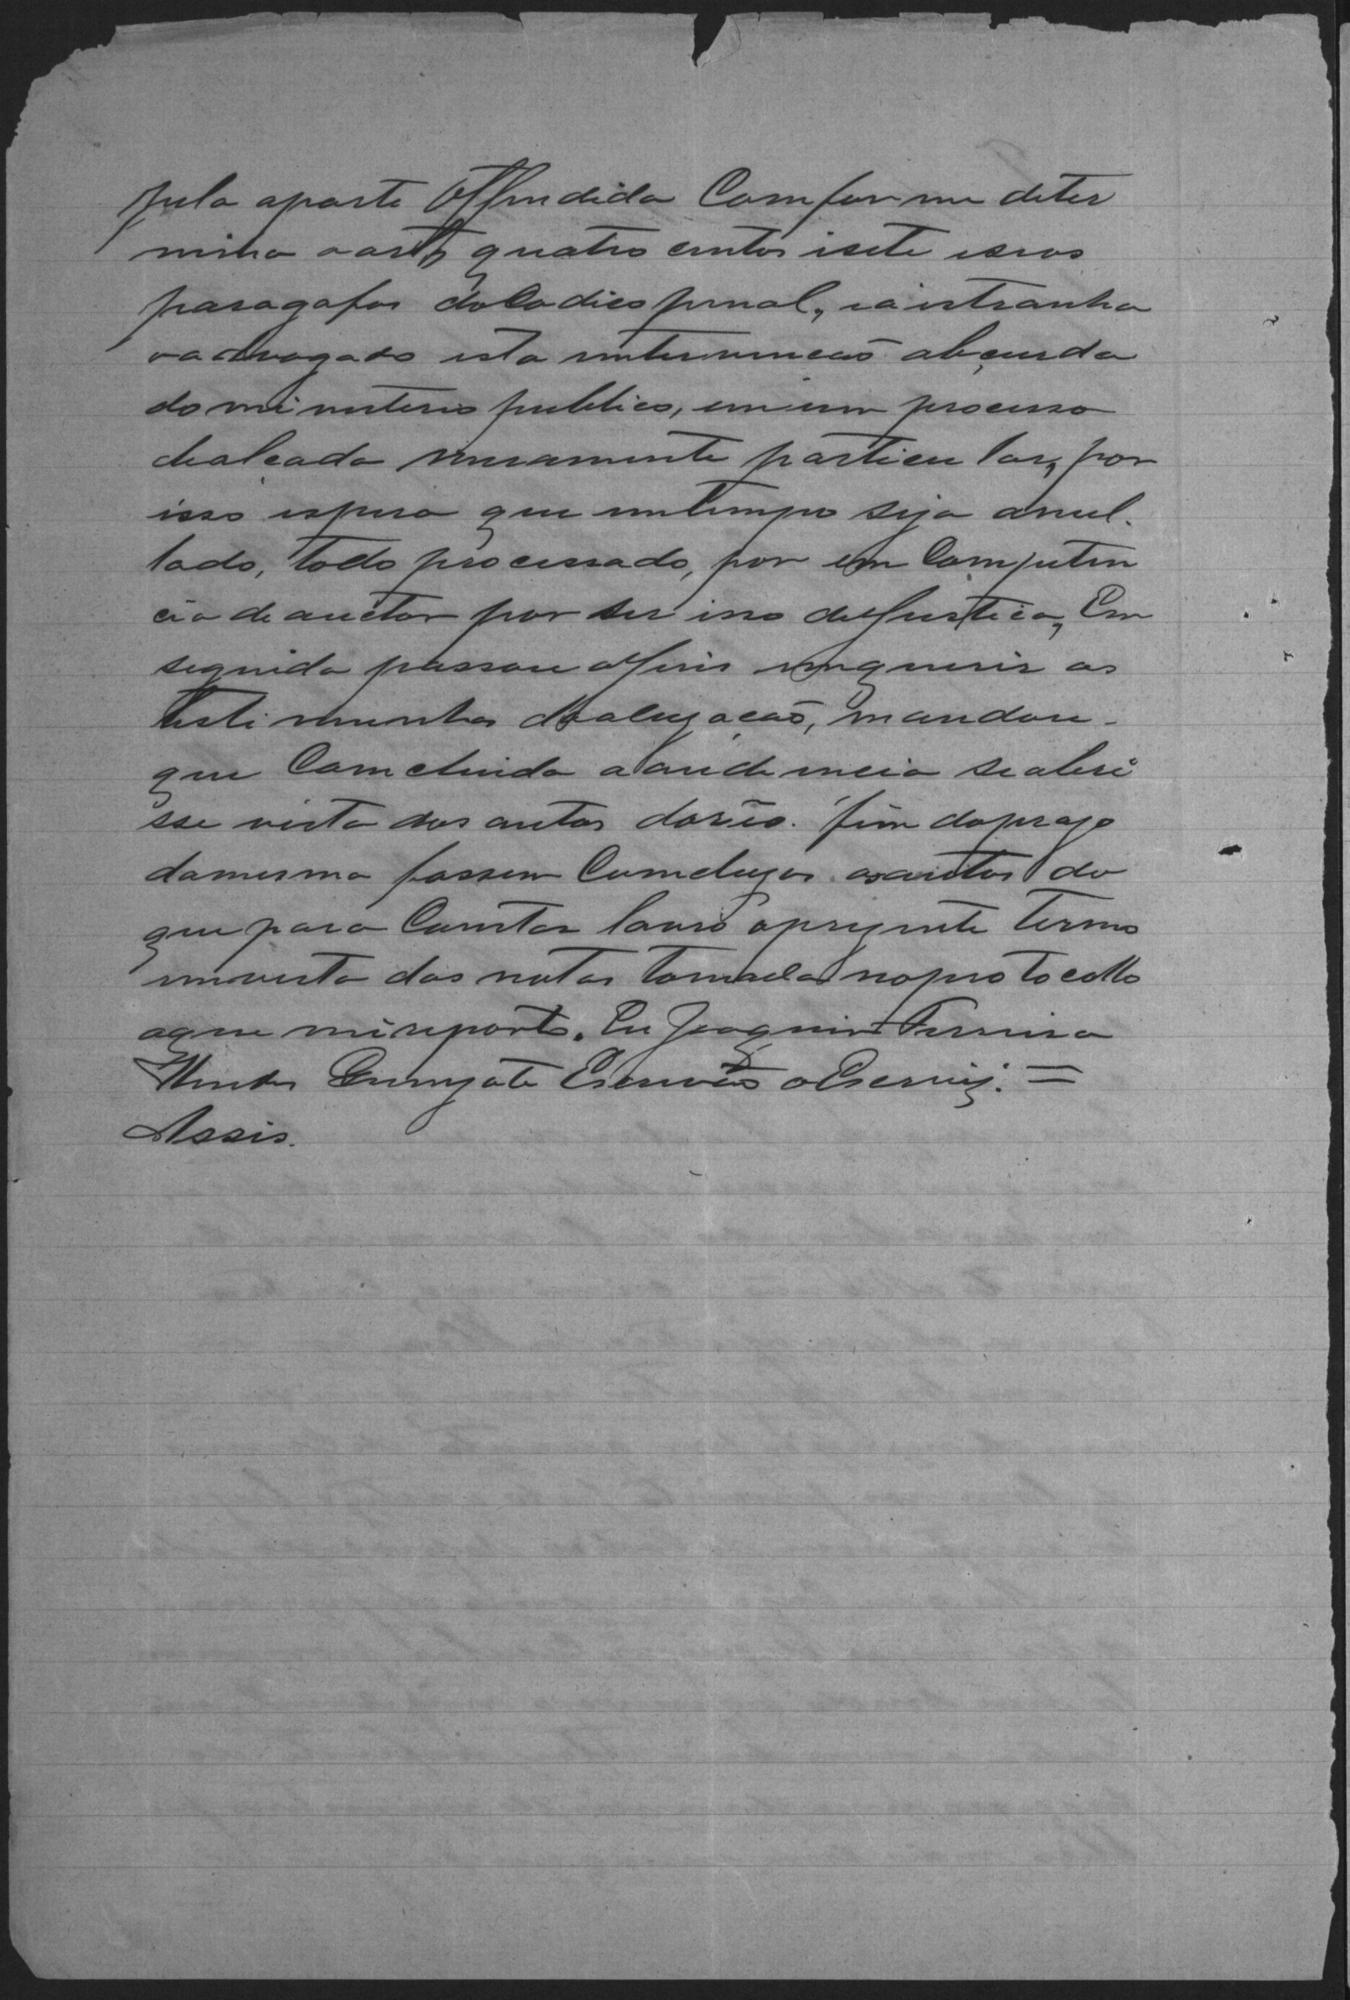 pela aparte Offendida Comforme deter
mina o artº quatro centos isete eseos
paragafos do Codico penal, ea istranha
o advogado esta intervencaõ abçurda
do ministerio publico, em um processo
de alcada meramente particular, por
isso espera que emtempo seja anul-
lado, todo processado, por em Competen
cia de auctor por ser isso de Justica, Em
seguida passou o Juis imquerir as
testimunhas de acuzacaõ, mandou-
que Comcluida a audiencia se abri
sse vista dos autos do réo. fim do prazo
da mesma fossem Comcluzos os autos do
que para Constar lavro o prezente termo
em vista das notas tomadas no protocollo
aque me reporto. Eu Joaquim Ferreira
Escrivaõ o Escrivij. =
Assis.